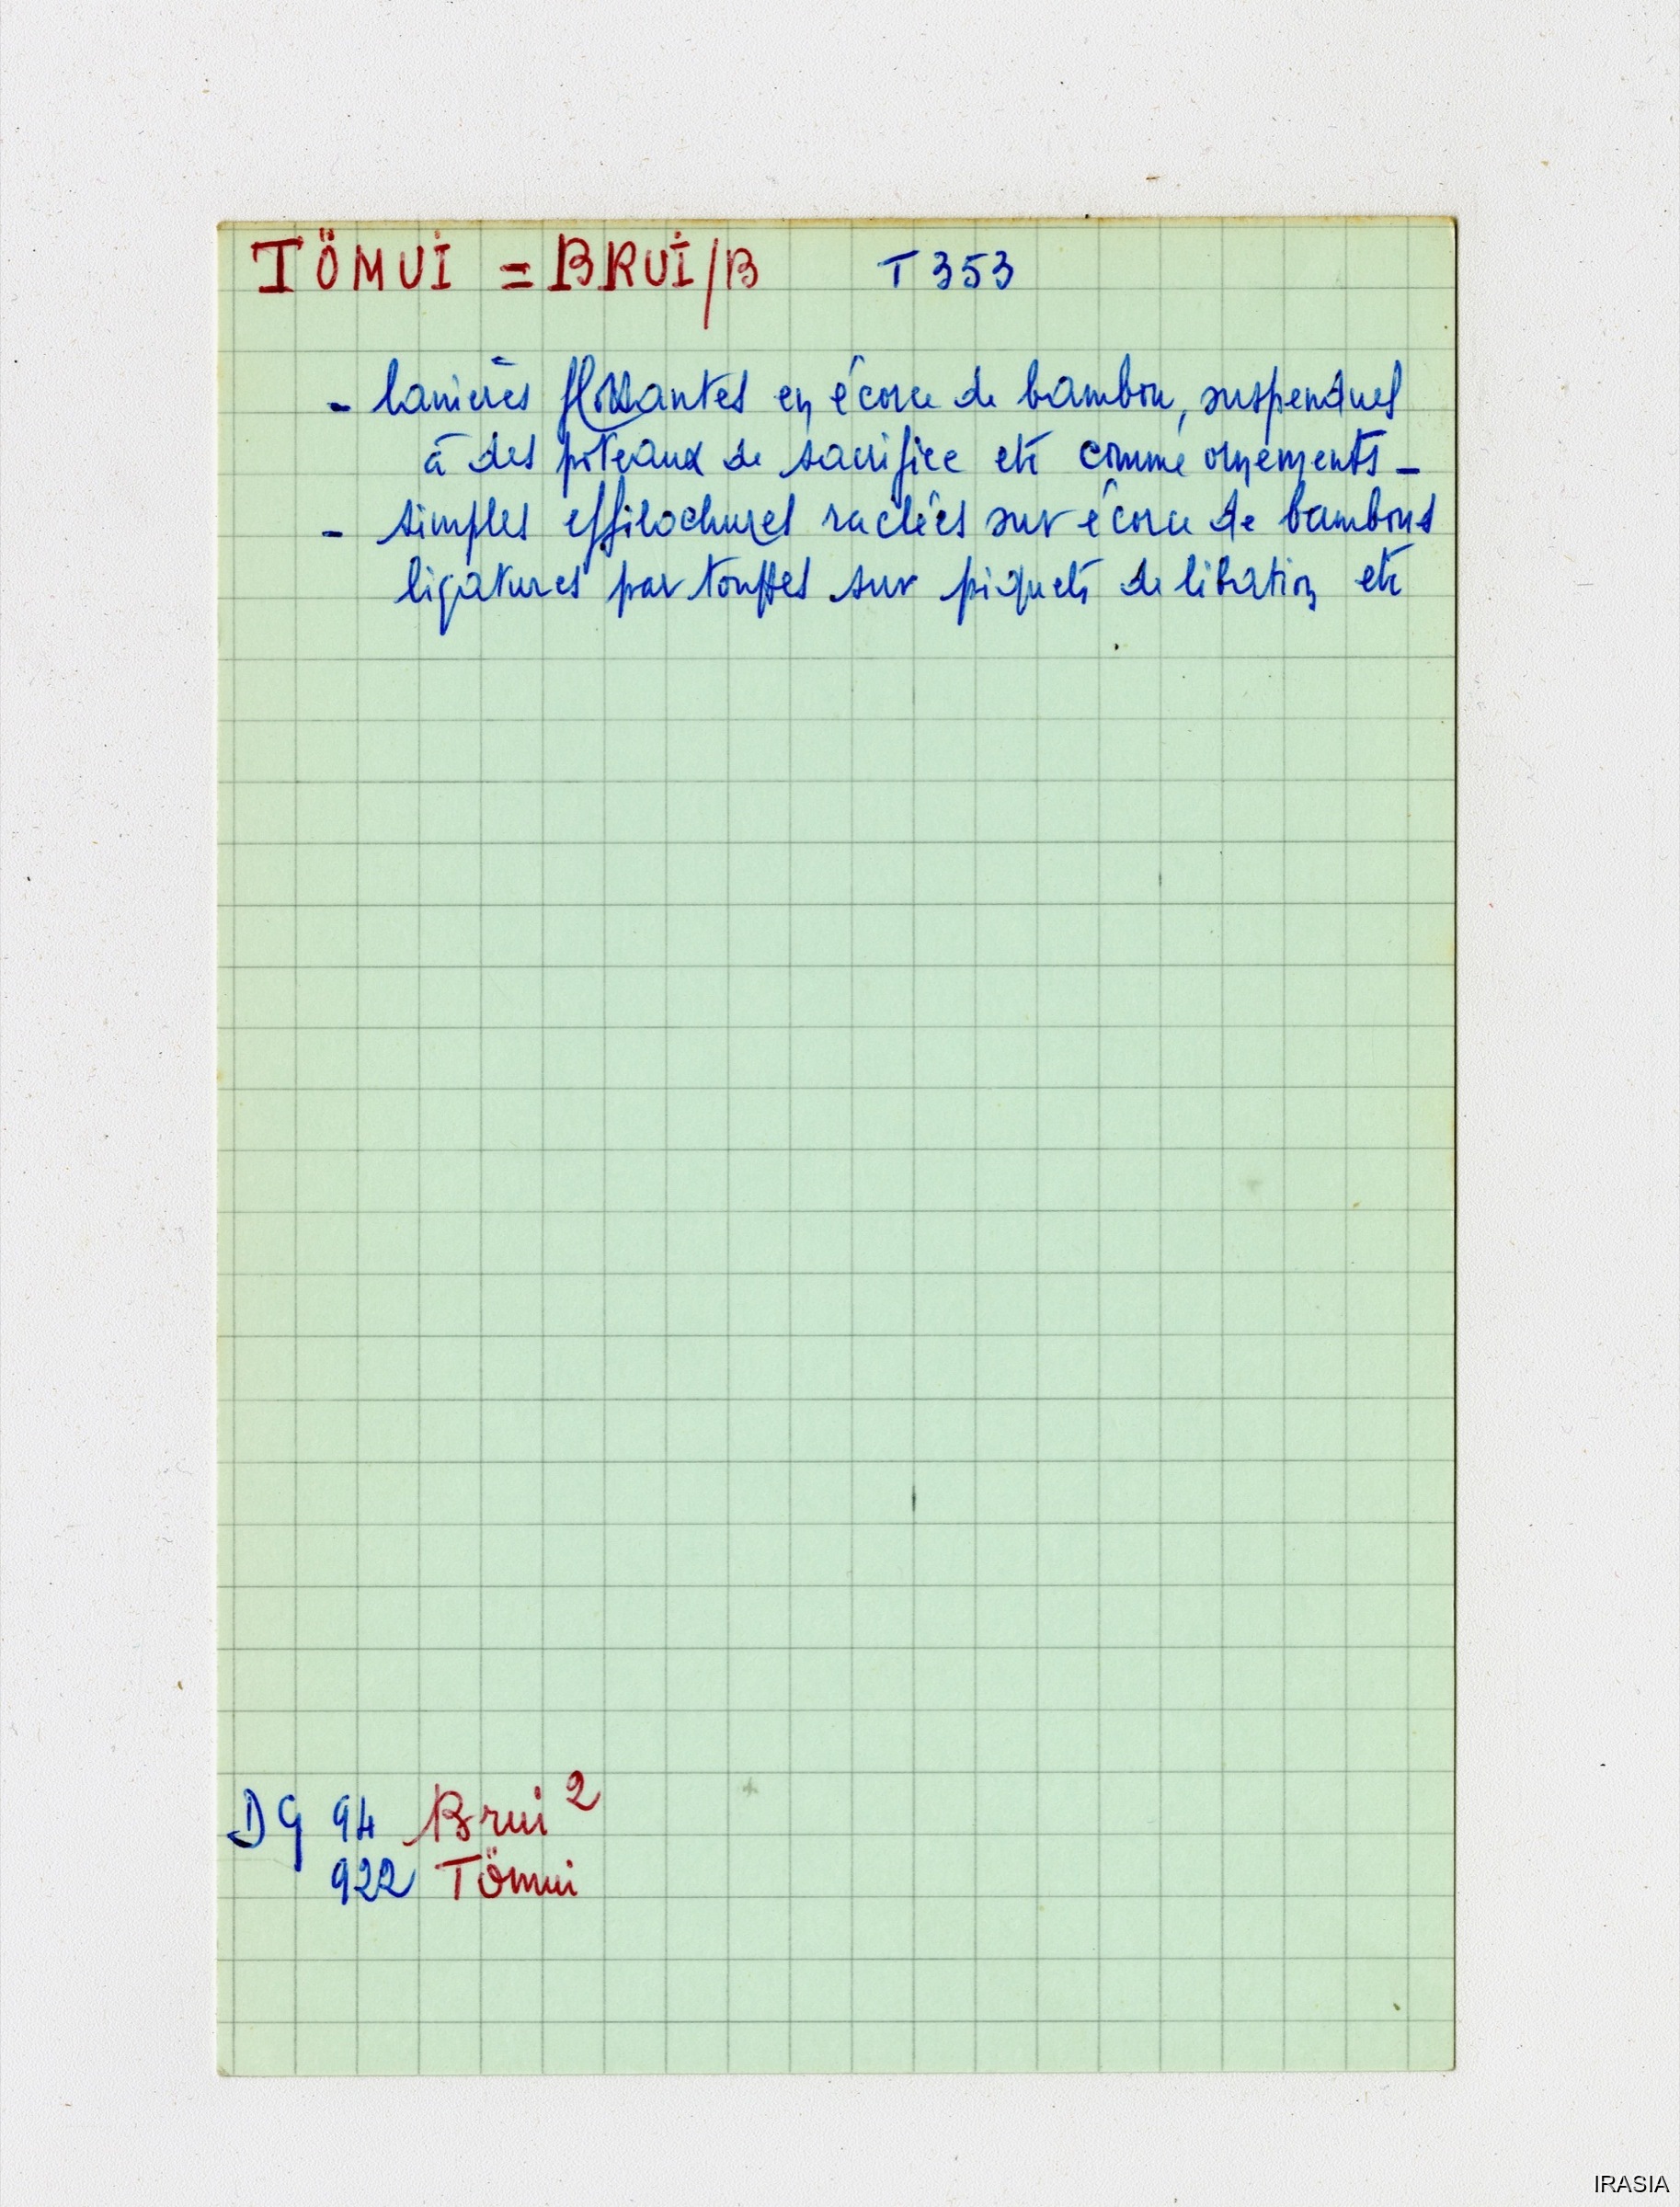 TÖMUI = BRUI/B T 353
- lanières flottantes en écorce de bambou, suspendues
à des poteaux de sacrifice etc comme ornements -
- simples effilochures raclées sur écorce de bambous
ligatures par touffes sur piquets de libation etc
DG 94 Brui 2
922 Tömui
IRASIA